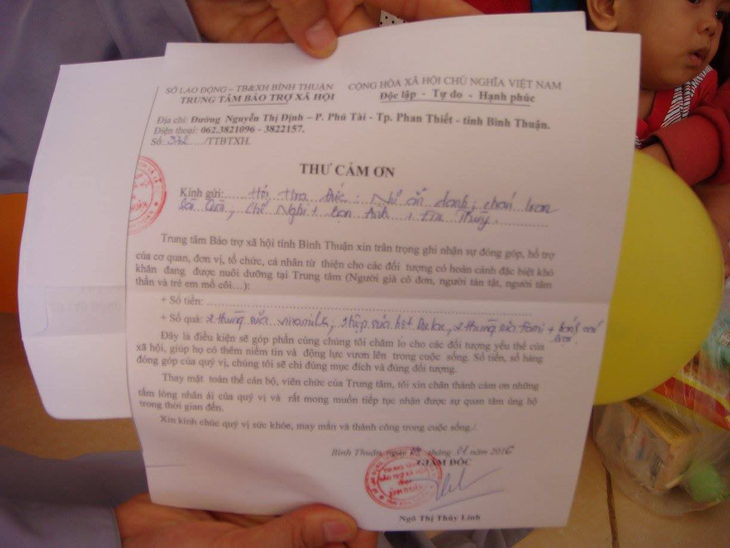 SỞ LAO ĐỘNG - TB&XH BÌNH THUẬN
TRUNG TÂM BẢO TRỢ XÃ HỘI
CỘNG HÒA XÃ HỘI CHỦ NGHĨA VIỆT NAM
Độc lập - Tự do - Hạnh phúc
Địa chỉ: Đường Nguyễn Thị Định – P. Phú Tài - Tp. Phan Thiết - tỉnh Bình Thuận.
Điện thoại: 062.3821096 - 3822157.
Số /TTBTXH.
THƯ CẢM ƠN
Kính gửi: Hội Thừa Đức : Nữ ẩn danh,
Chị Nghi + bạn Anh + Em Thủy
Trung tâm Bảo trợ xã hội tỉnh Bình Thuận xin trân trọng ghi nhận sự đóng góp, hỗ trợ
của cơ quan, đơn vị, tổ chức, cá nhân từ thiện cho các đối tượng có hoàn cảnh đặc biệt khó
khăn đang được nuôi dưỡng tại Trung tâm (Người già cô đơn, người tàn tật, người tâm
thần và trẻ em mồ côi…):
+ Số tiền:
+ Số quà: 2 thùng sữa vinamilk, sữa bột , 2 thùng sữa Fami +
Đây là điều kiện sẽ góp phần cùng chúng tôi chăm lo cho các đối tượng yếu thế của
xã hội, giúp họ có thêm niềm tin và động lực vươn lên trong cuộc sống. Số tiền, số hàng
đóng góp của quý vị, chúng tôi sẽ chi đúng mục đích và đúng đối tượng.
Thay mặt toàn thể cán bộ, viên chức của Trung tâm, tôi xin chân thành cảm ơn những
tấm lòng nhân ái của quý vị và rất mong muốn tiếp tục nhận được sự quan tâm ủng hộ
trong thời gian đến.
Xin kính chúc quý vị sức khỏe, may mắn và thành công trong cuộc sống./.
Bình Thuận, ngày tháng 01 năm 2016
GIÁM ĐỐC
Ngô Thị Thùy Linh